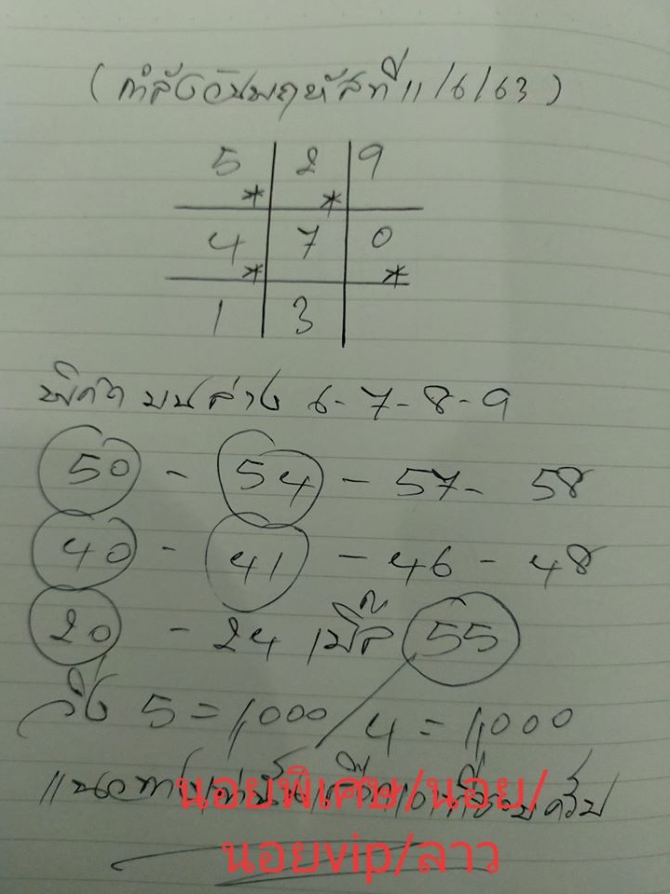 (กำลังวันพฤหัสที่ 11/6/63)
5 2 9
* *
4 7 0
* *
1 3
พิกัด บนล่าง 6-7-8-9
50 - 54 - 57 - 58
40 - 41 - 46 - 48
20 - 24 เบิ้ล 55
วิ่ง 5 = 1,000 / 4 = 1,000
แนวทาง ครับ
นอยพิเศษ/นอย/
นอยvip/ลาว